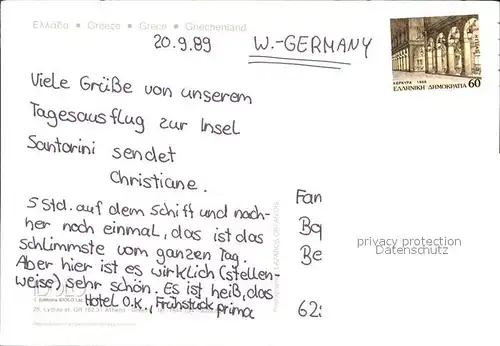 Ελλάδα • Greece • Grèce • Griechenland
20.9.89 W.-GERMANY
ΚΕΡΚΥΡΑ 1988
ΕΛΛΗΝΙΚΗ ΔΗΜΟΚΡΑΤΙΑ 60
Viele Grüße von unserem
Tagesausflug zur Insel
Santorini sendet
Christiane.
5 Std. auf dem Schiff und nach-
her noch einmal, das ist das
schlimmste vom ganzen Tag.
Aber hier ist es wirklich (stellen-
weise) sehr schön. Es ist heiß, das
Hotel O.K., Frühstück prima
Fam
Be
62
privacy protection
Datenschutz